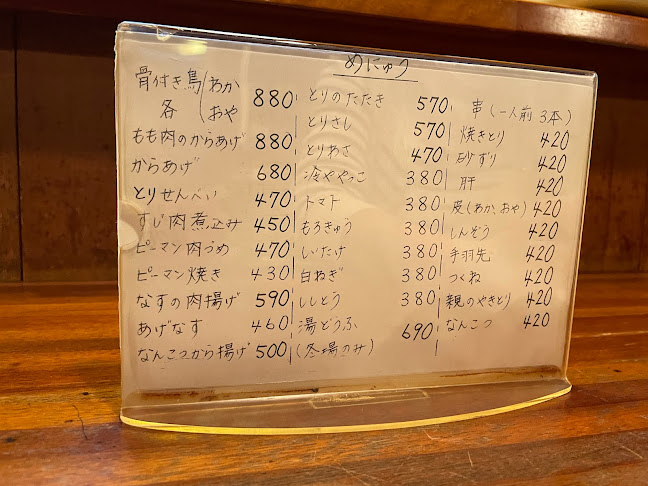 めにゅう
骨付き鳥(わか 880
各(おや
もも肉のからあげ 880
からあげ 680
とりせんべい 470
すじ肉煮込み 450
ピーマン肉づめ 470
ピーマン焼き 430
なすの肉揚げ 590
あげなす 460
なんこつから揚げ 500
とりのたたき 570
とりさし 570
とりわさ 470
冷ややっこ 380
トマト 380
もろきゅう 380
しいたけ 380
白ねぎ 380
ししとう 380
湯どうふ 690
(冬場のみ)
串(一人前 3本)
焼きとり 420
砂ずり 420
肝 420
皮(わか、おや) 420
しんぞう 420
手羽先 420
つくね 420
親のやきとり 420
なんこつ 420